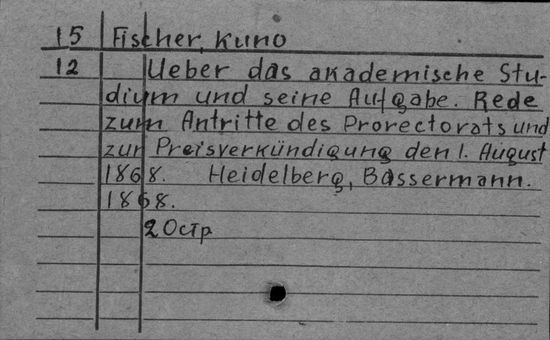 15 Fischer, Kuno
12 Ueber das akademische Stu-
dium und seine Aufgabe. Rede
zum Antritte des Prorectorats und
zur Preisverkündigung den 1. August
1868. Heidelberg, Bassermann.
1868.
2 Остр